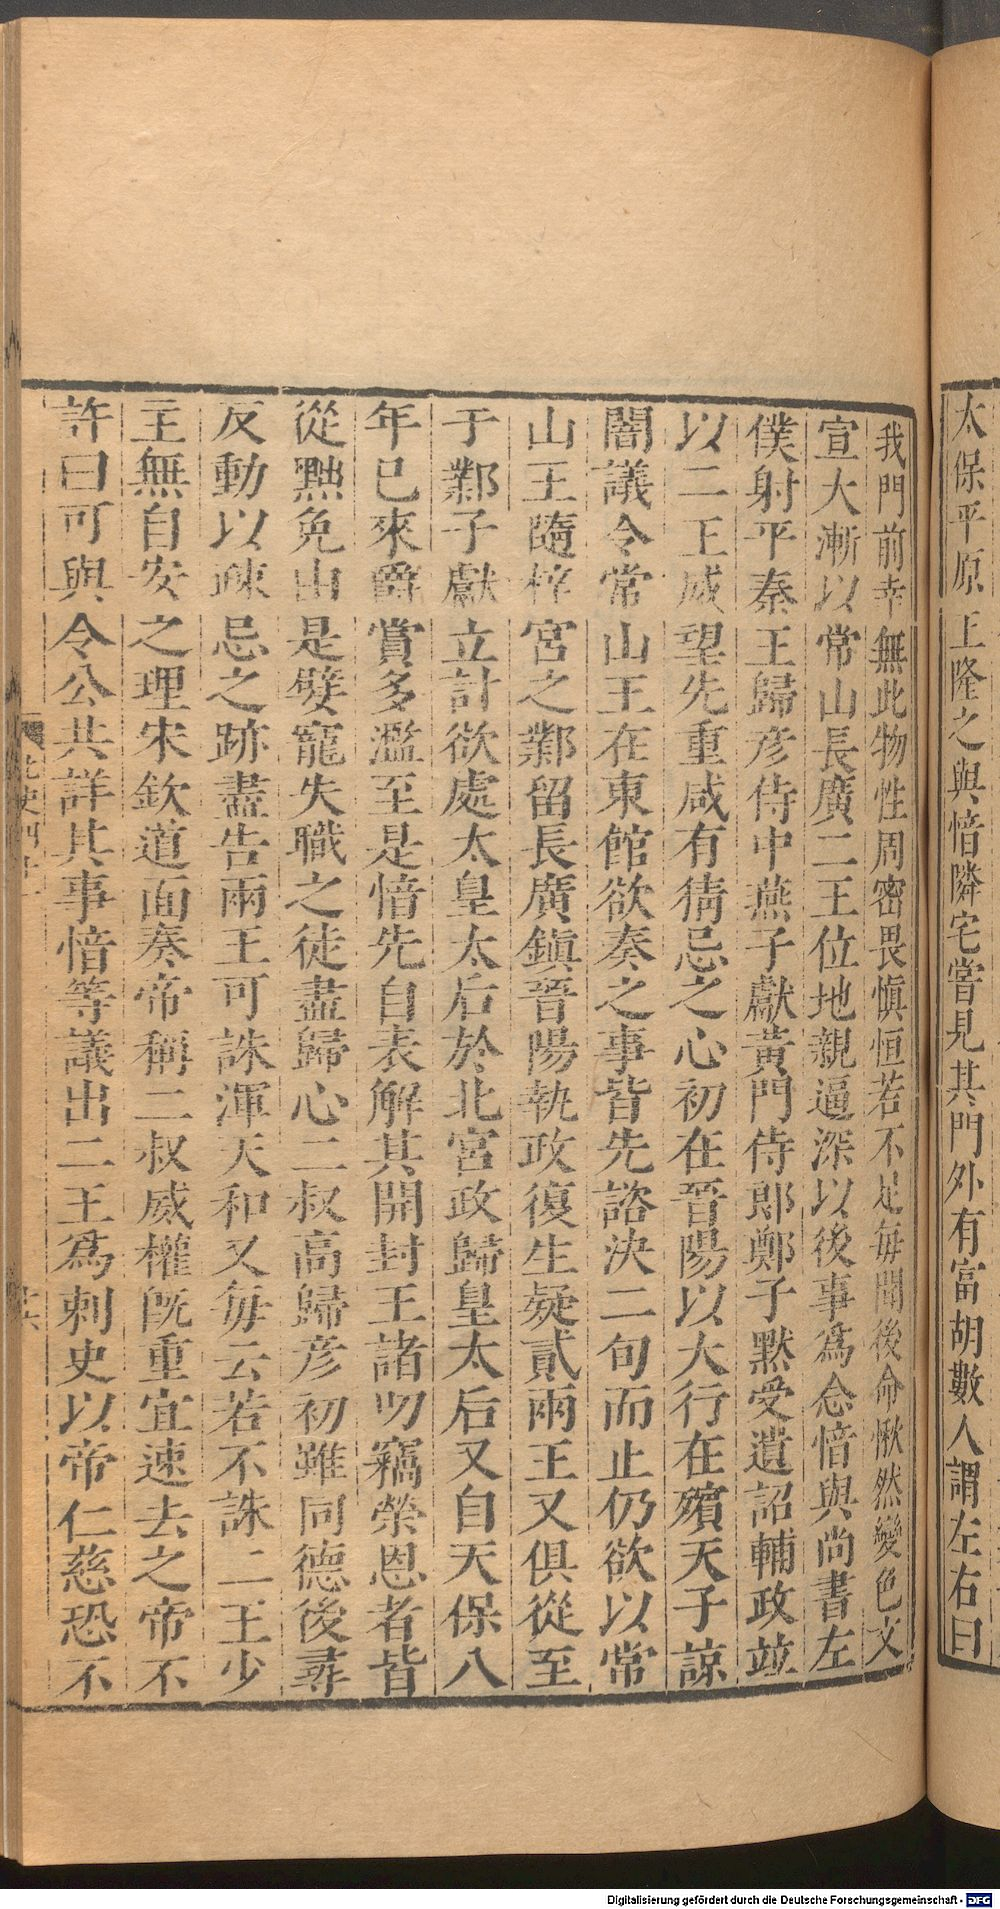 太保平原王隆之與愔隣宅嘗見其門外有富胡數人謂左右曰
我門前幸無此物性周密畏慎恒若不足每聞後命愀然變色文
宣大漸以常山長廣二王位地親逼深以後事爲念愔與尚書左
僕射平秦王歸彦侍中燕子獻黃門侍郎鄭子黙受遺詔輔政竝
以二王威望先重咸有猜忌之心初在晉陽以大行在殯天子諒
闇議令常山王在東館欲奏之事皆先諮決二旬而止仍欲以常
山王隨梓宮之鄴留長廣鎮晉陽執政復生疑貳兩王又俱從至
于鄴子獻立計欲處太皇太后於北宮政歸皇太后又自天保八
年已來爵賞多濫至是愔先自表解其開封王諸叨竊榮恩者皆
從黜免由是嬖寵失職之徒盡歸心二叔高歸彦初雖同德後尋
反動以疎忌之跡盡告兩王可誅渾天和又每云若不誅二王少
主無自安之理宋欽道面奏帝稱二叔威權旣重宜速去之帝不
許曰可與令公共詳其事愔等議出二王爲刺史以帝仁慈恐不
Digitalisierung gefördert durch die Deutsche Forschungsgemeinschaft - DFG